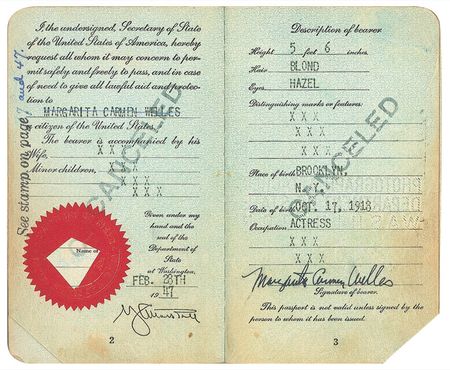 I, the undersigned, Secretary of State
of the United States of America, hereby
request all whom it may concern to per-
mit safely and freely to pass, and in case
of need to give all lawful aid and protec-
tion to
MARGARITA CARMEN WELLES
a citizen of the United States.
The bearer is accompanied by his
Wife, X X X
Minor children, X X X
X X X
X X X
CANCELED
See stamp on page, and 47.
Given under my
hand and the
seal of the
Department of
State
at Washington,
FEB. 28TH
1947
Name of
2
Description of bearer
Height 5 feet 6 inches.
Hair BLOND
Eyes HAZEL
Distinguishing marks or features:
X X X
X X X
X X X
Place of birth BROOKLYN,
N. Y.
Date of birth OCT. 17, 1918
Occupation ACTRESS
X X X
X X X
CANCELED
Margarita Carmen Welles
Signature of bearer.
This passport is not valid unless signed by the
person to whom it has been issued.
3